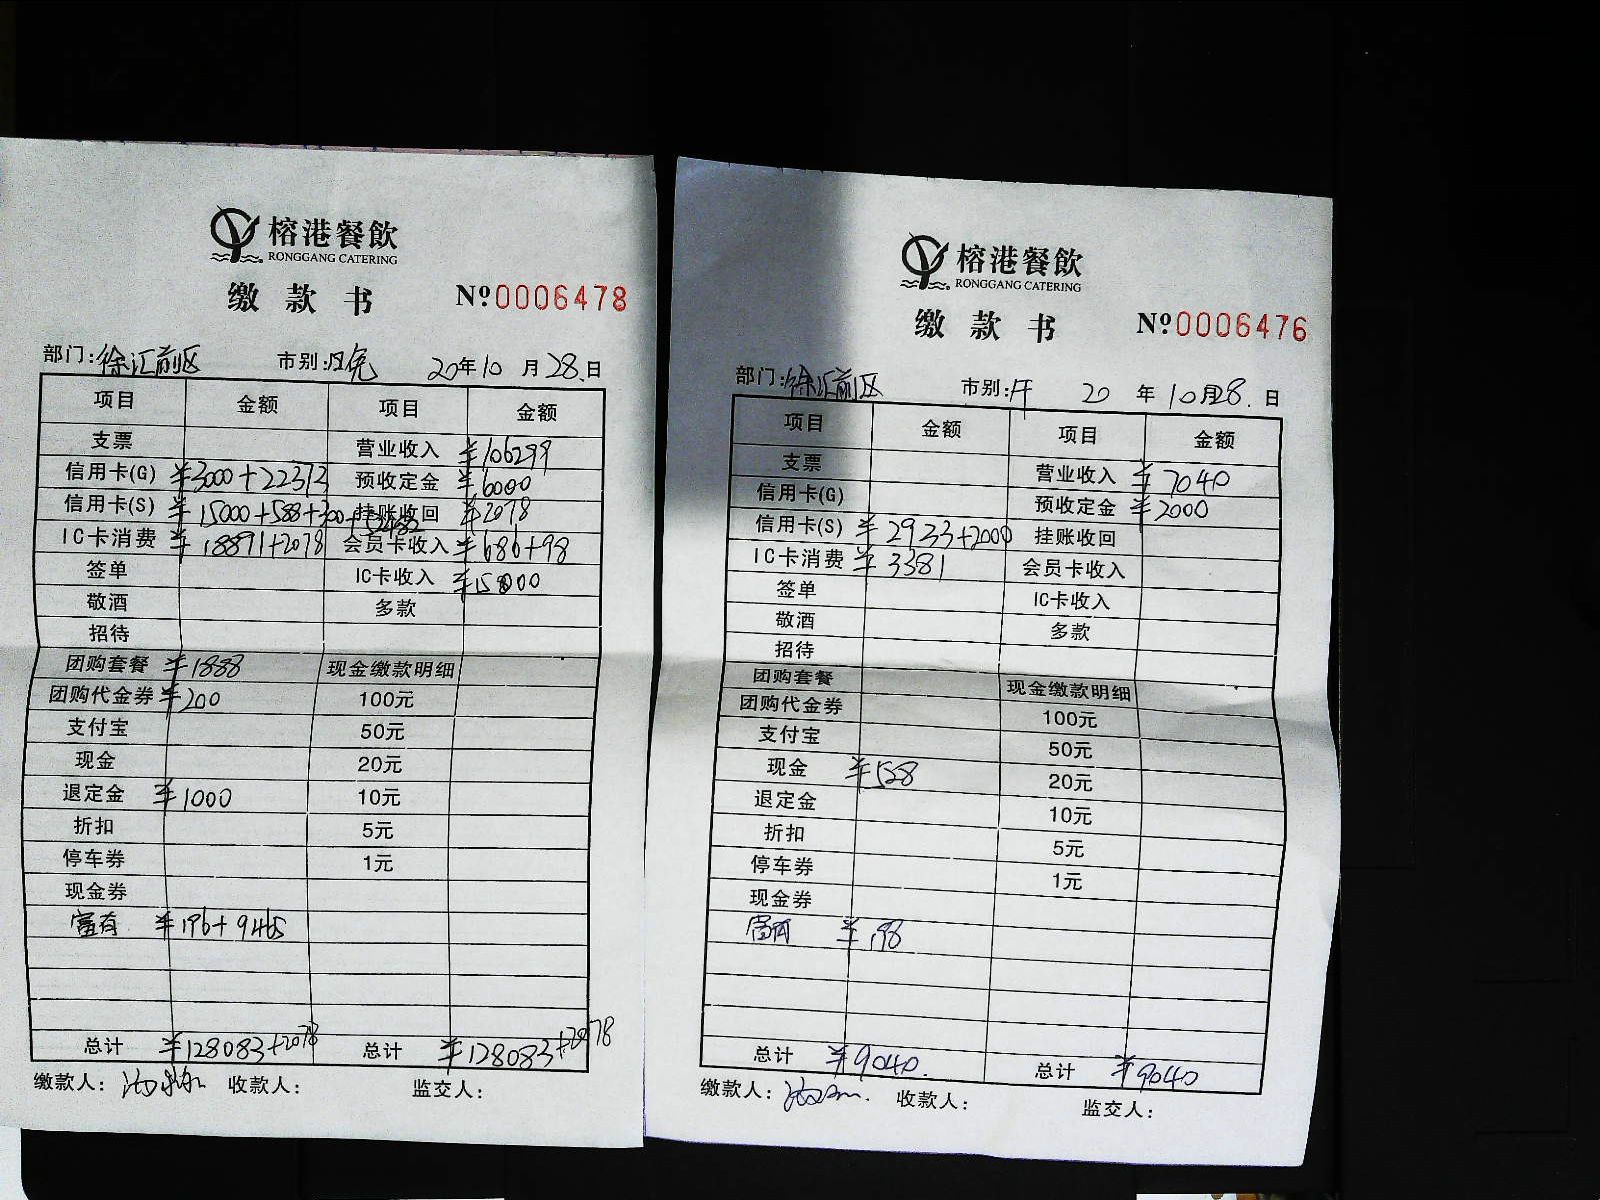 榕港餐飲
RONGGANG CATERING
缴款书 Nº0006478
部门:徐汇前区 市别: 晚 20年10月28日
项目 金额 项目 金额
支票 营业收入 ¥106299
信用卡(G) ¥3000+22373 预收定金 ¥6000
信用卡(S) ¥15000+588+300+ 挂账收回 ¥2078
IC卡消费 ¥18891+2078 会员卡收入 ¥686+98
签单 IC卡收入 ¥15000
敬酒 多款
招待
团购套餐 ¥1888 现金缴款明细
团购代金券 ¥200 100元
支付宝 50元
现金 20元
退定金 ¥1000 10元
折扣 5元
停车券 1元
现金券
富有 ¥196+9465
总计 ¥128083+2078 总计 ¥128083+2078
缴款人: 收款人: 监交人:
榕港餐飲
RONGGANG CATERING
缴款书 Nº0006476
部门:徐汇前区 市别:午 20年10月28日
项目 金额 项目 金额
支票 营业收入 ¥7040
信用卡(G) 预收定金 ¥2000
信用卡(S) ¥2933+2000 挂账收回
IC卡消费 ¥3381 会员卡收入
签单 IC卡收入
敬酒 多款
招待
团购套餐 现金缴款明细
团购代金券 100元
支付宝 50元
现金 ¥528 20元
退定金 10元
折扣 5元
停车券 1元
现金券
富有 ¥198
总计 ¥9040. 总计 ¥9040
缴款人: 收款人: 监交人: